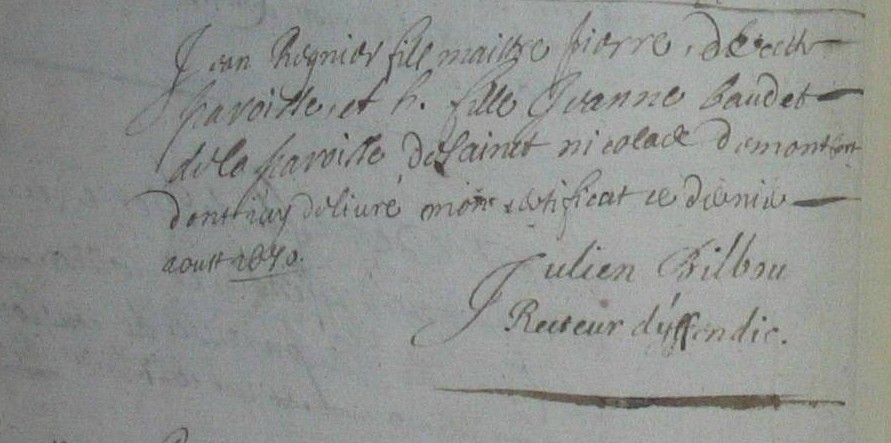 Jean Regnier fill maistre pierre, de cette
paroisse, et h. fille Jeanne baudet
de la paroisse de Sainct nicolas de montfort
dont iay deliuré mon certificat ce dernie
aoust 1670.
Julien Bilbou
Recteur d'yffendic.